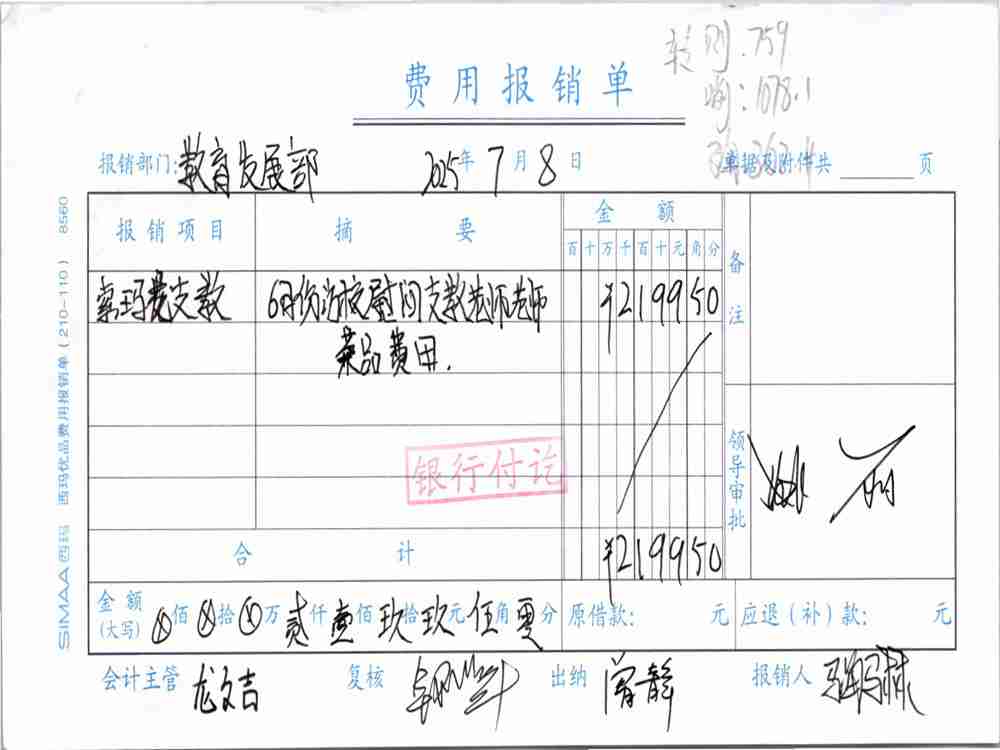 转 刚:759
:1078.1
费用报销单
报销部门:教育发展部 2025年7月8日 单据及附件共 页
报销项目 摘要 金额 备注
百十万千百十元角分
索玛支教 6月份访校慰问支教老师老师 ¥219950
菜品费用.
银行付讫
领导审批
合计 ¥219950
金额(大写) ⊗佰⊗拾⊗万贰仟壹佰玖拾玖元伍角零分 原借款: 元 应退(补)款: 元
会计主管 龙文吉 复核 出纳 曾静 报销人
SIMAA西玛 西玛优品费用报销单(210-110) 8560